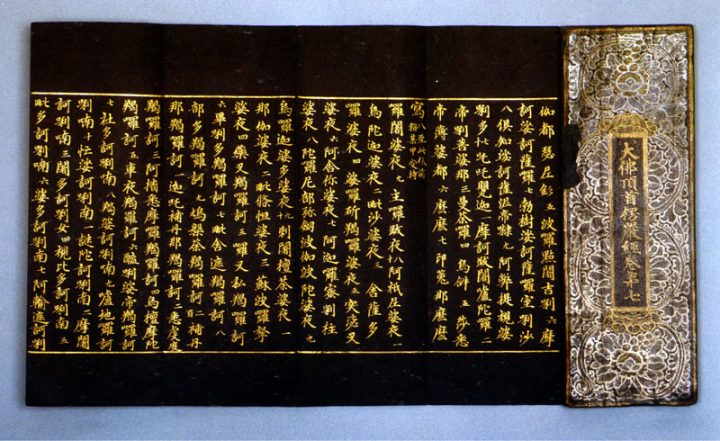 大佛頂首楞嚴經卷第七
伽都瑟尼彭五波囉點闍吉唎六摩
訶娑訶薩囉七勃樹娑訶薩囉室唎沙
八俱知娑訶薩泥帝九阿弊提視婆
唎多十吒吒甖迦一摩訶跋闍盧陀囉二
帝唎菩婆那三曼荼囉四烏𤙖五莎悉
帝薄婆都六麼麼七印菟那麼麼
寫八
囉闍婆夜九主囉跋夜十八阿祇尼婆夜一
烏陀迦婆夜二毗沙婆夜三舍薩多
囉婆夜四婆囉斫羯囉婆夜五突瑟叉
婆夜六阿舍你婆夜七阿迦囉蜜唎柱
婆夜八陀囉尼部彌劍波伽波陀婆夜九
烏囉迦婆多婆夜十九刺闍檀荼婆夜一
那伽婆夜二毗條怛婆夜三蘇波囉拏
婆夜四藥叉羯囉訶五囉叉私羯囉訶
六畢唎多羯囉訶七毗舍遮羯囉訶八
部多羯囉訶九鳩槃荼羯囉訶二十補丹
那羯囉訶一迦吒補丹那羯囉訶二悉乾度
羯囉訶三阿播悉摩囉羯囉訶四烏檀摩陀
羯囉訶五車夜羯囉訶六醯唎婆帝羯囉訶
七社多訶唎喃八羯婆訶唎喃九盧地囉訶
唎喃十忙娑訶唎喃一謎陀訶唎喃二摩闍
訶唎喃三闍多訶唎女四視比多訶唎喃五
毗多訶唎喃六婆多訶唎喃七阿輸遮訶唎